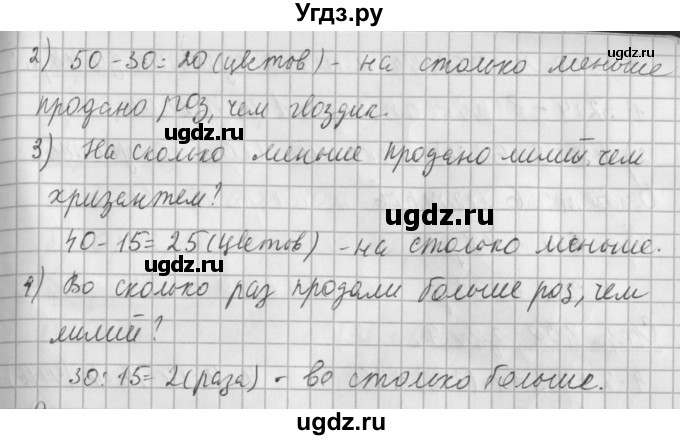 Угдз.ру
2) 50-30=20(цветов) - на столько меньше
продано роз, чем гвоздик.
ugdz.ru ugdz.ru
3) На сколько меньше продано лилий, чем
хризантем?
ugdz.ru ugdz.ru
40-15=25(цветов) - на столько меньше.
4) Во сколько раз продали больше роз, чем
ugdz.ru
лилий?
ugdz.ru
30:15=2(раза) - во столько больше.
ugdz.ru ugdz.ru